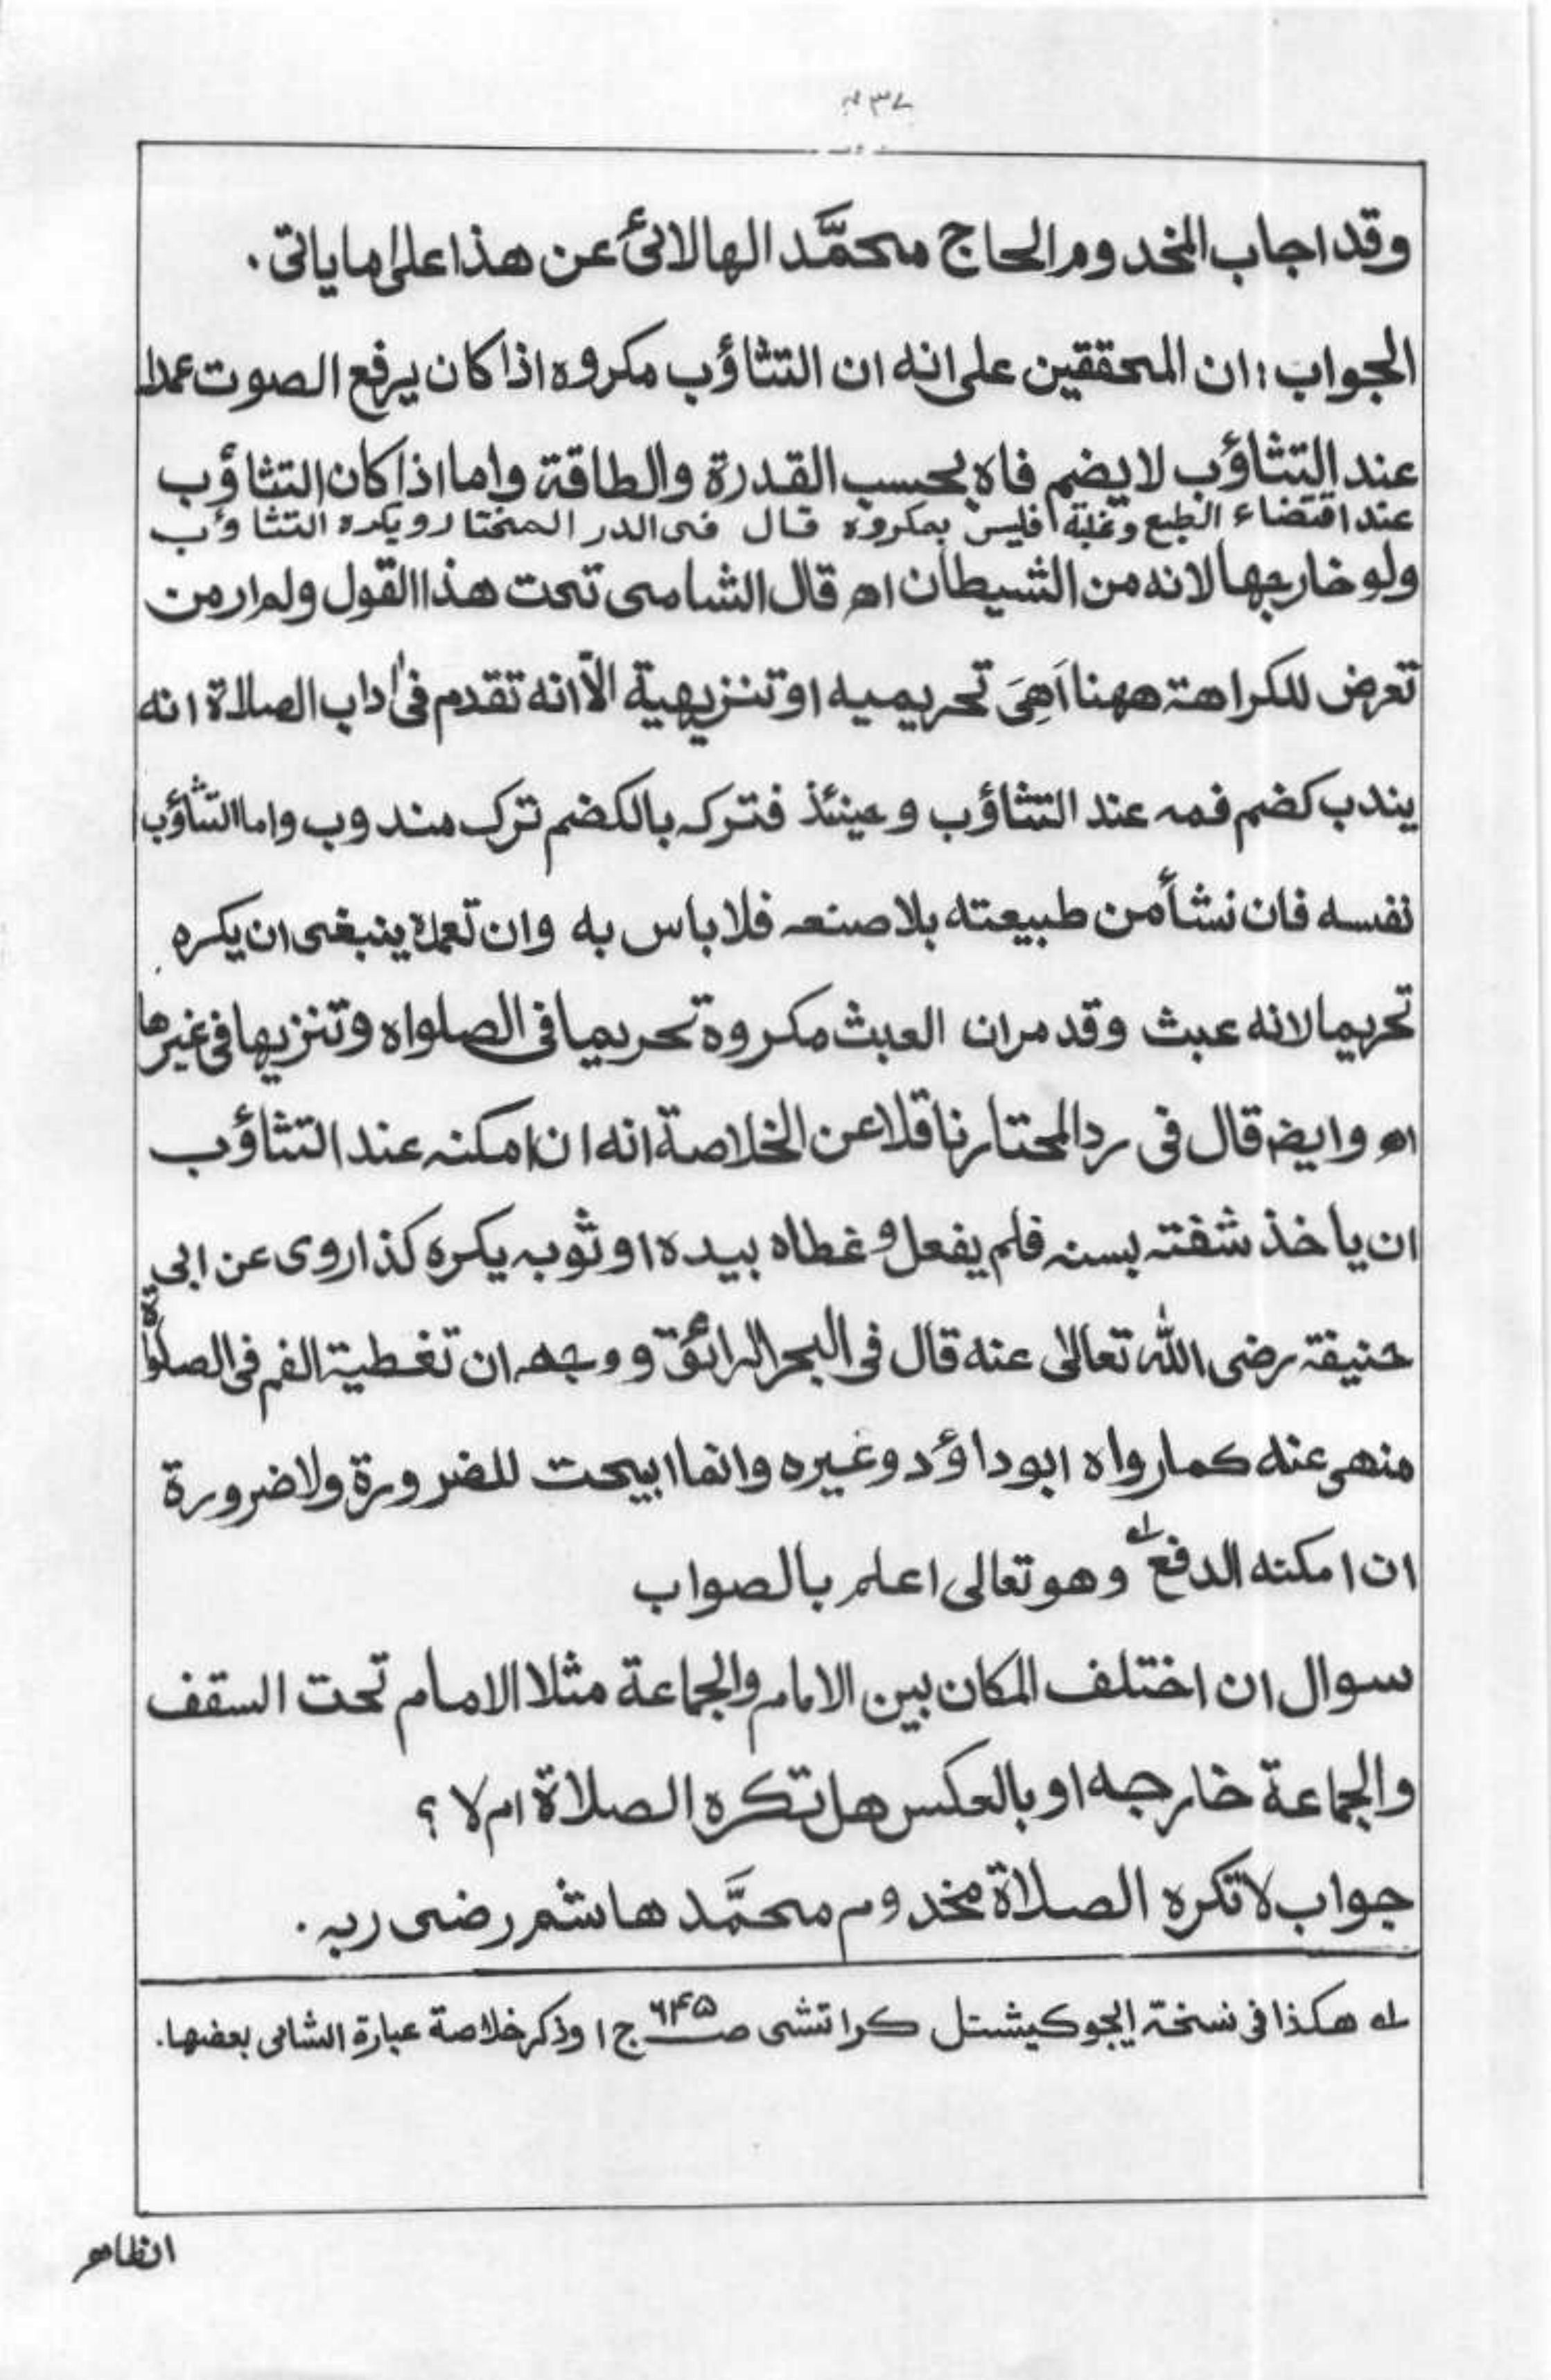 وقد اجاب المخدوم الحاج محمَّد الهالائیؒ عن هذا علی ما یاتی.
الجواب: ان المحققین علی انه ان التثاؤب مکروه اذا کان یرفع الصوت عمدا
عند التثاؤب لا یضم فاه بحسب القدرة والطاقة واما اذا کان التثاؤب
عند اقتضاء الطبع وغلبة افلیس بمکروه قال فی الدر المختار ویکره التثاؤب
ولو خارجها لانه من الشیطان اه قال الشامی تحت هذا القول ولم ار من
تعرض للکراهة ههنا اَهِیَ تحریمیه او تنزیهیة الّا انه تقدم فی اٰداب الصلاة انه
یندب کضم فمه عند التثاؤب وحینئذ فترکه بالکضم ترک مندوب واما التثاؤب
نفسه فان نشأ من طبیعته بلا صنعه فلا باس به وان تعمدة ینبغی ان یکره
تحریما لانه عبث وقد مر ان العبث مکروة تحریما فی الصلواه وتنزیها فی غیرها
اه وایضہ قال فی رد المحتار ناقلا عن الخلاصة انه ان امکنه عند التثاؤب
ان یاخذ شفته بسنه فلم یفعل و غطاه بیده او ثوبه یکره کذا روی عن ابی
حنیفة رضی الله تعالیٰ عنه قال فی البحر الرائق ووجهه ان تغطیة الفم فی الصلوٰة
منهی عنه کما رواه ابو داؤد وغیره وانما ابیحت للضرورة ولا ضرورة
ان امکنه الدفع له وهو تعالی اعلم بالصواب
سوال ان اختلف المکان بین الامام والجماعة مثلا الامام تحت السقف
والجماعة خارجه او بالعکس هل تکره الصلاة ام لا؟
جواب لا تکره الصلاة مخدوم محمَّد هاشم رضی ربه.
له هکذا فی نسخة ایجوکیشنل کراتشی صـ ۶۴۵ ج ۱ وذکر خلاصة عبارة الشامی بعضها.
انظاهر